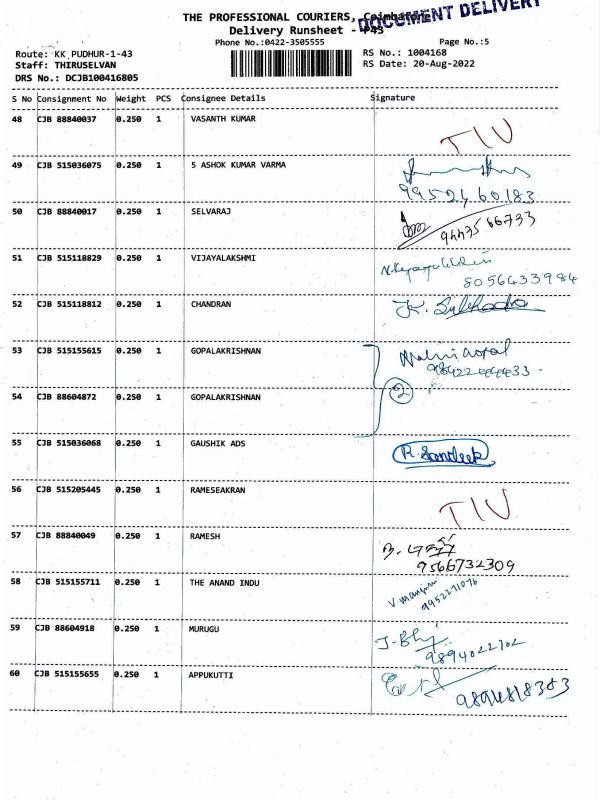 THE PROFESSIONAL COURIERS, Coimbatore
DOCUMENT DELIVERY
Delivery Runsheet - P43
Phone No.:0422-3505555
Page No.:5
Route: KK_PUDHUR-1-43
RS No.: 1004168
Staff: THIRUSELVAN
RS Date: 20-Aug-2022
DRS No.: DCJB100416805
S No Consignment No Weight PCS Consignee Details Signature
48 CJB 88840037 0.250 1 VASANTH KUMAR
TIU
49 CJB 515036075 0.250 1 S ASHOK KUMAR VARMA
9952460183
50 CJB 88840017 0.250 1 SELVARAJ
9443566733
51 CJB 515118829 0.250 1 VIJAYALAKSHMI
8056433984
52 CJB 515118812 0.250 1 CHANDRAN
53 CJB 515155615 0.250 1 GOPALAKRISHNAN
54 CJB 88604872 0.250 1 GOPALAKRISHNAN
2
55 CJB 515036068 0.250 1 GAUSHIK ADS
R. Sandeep
56 CJB 515205445 0.250 1 RAMESEAKRAN
TIU
57 CJB 88840049 0.250 1 RAMESH
9566732309
58 CJB 515155711 0.250 1 THE ANAND INDU
59 CJB 88604918 0.250 1 MURUGU
9894022702
60 CJB 515155655 0.250 1 APPUKUTTI